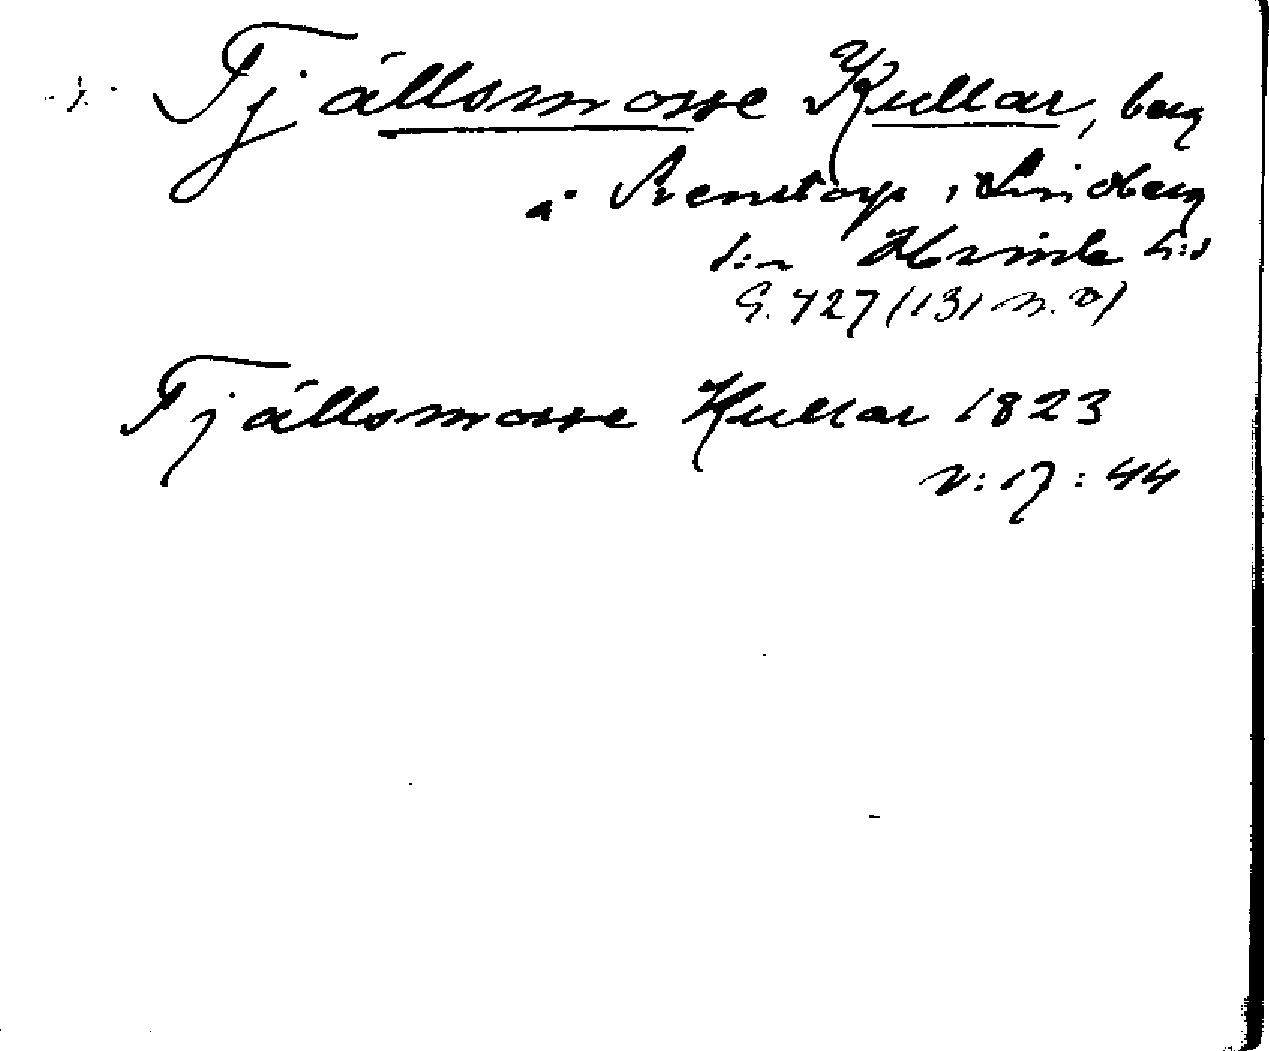 Fjällsmosse Kullar, berg
å Svenstorp, Lindberg
s:n Himle h:d
G. 427 (131 n. o)
Fjällsmosse Kullar 1823
v: 17: 44